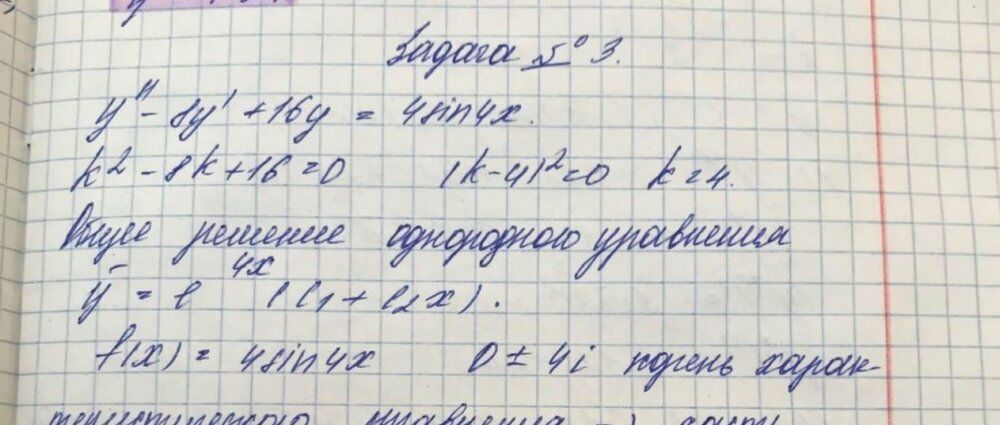 Задача № 3.
y'' - 8y' + 16y = 4sin4x.
k² - 8k + 16 = 0 (k-4)² = 0 k = 4.
Общее решение однородного уравнения
ȳ = e^{4x} (C₁ + C₂x).
f(x) = 4sin4x 0 ± 4i корень харак-
теристического уравнения =>